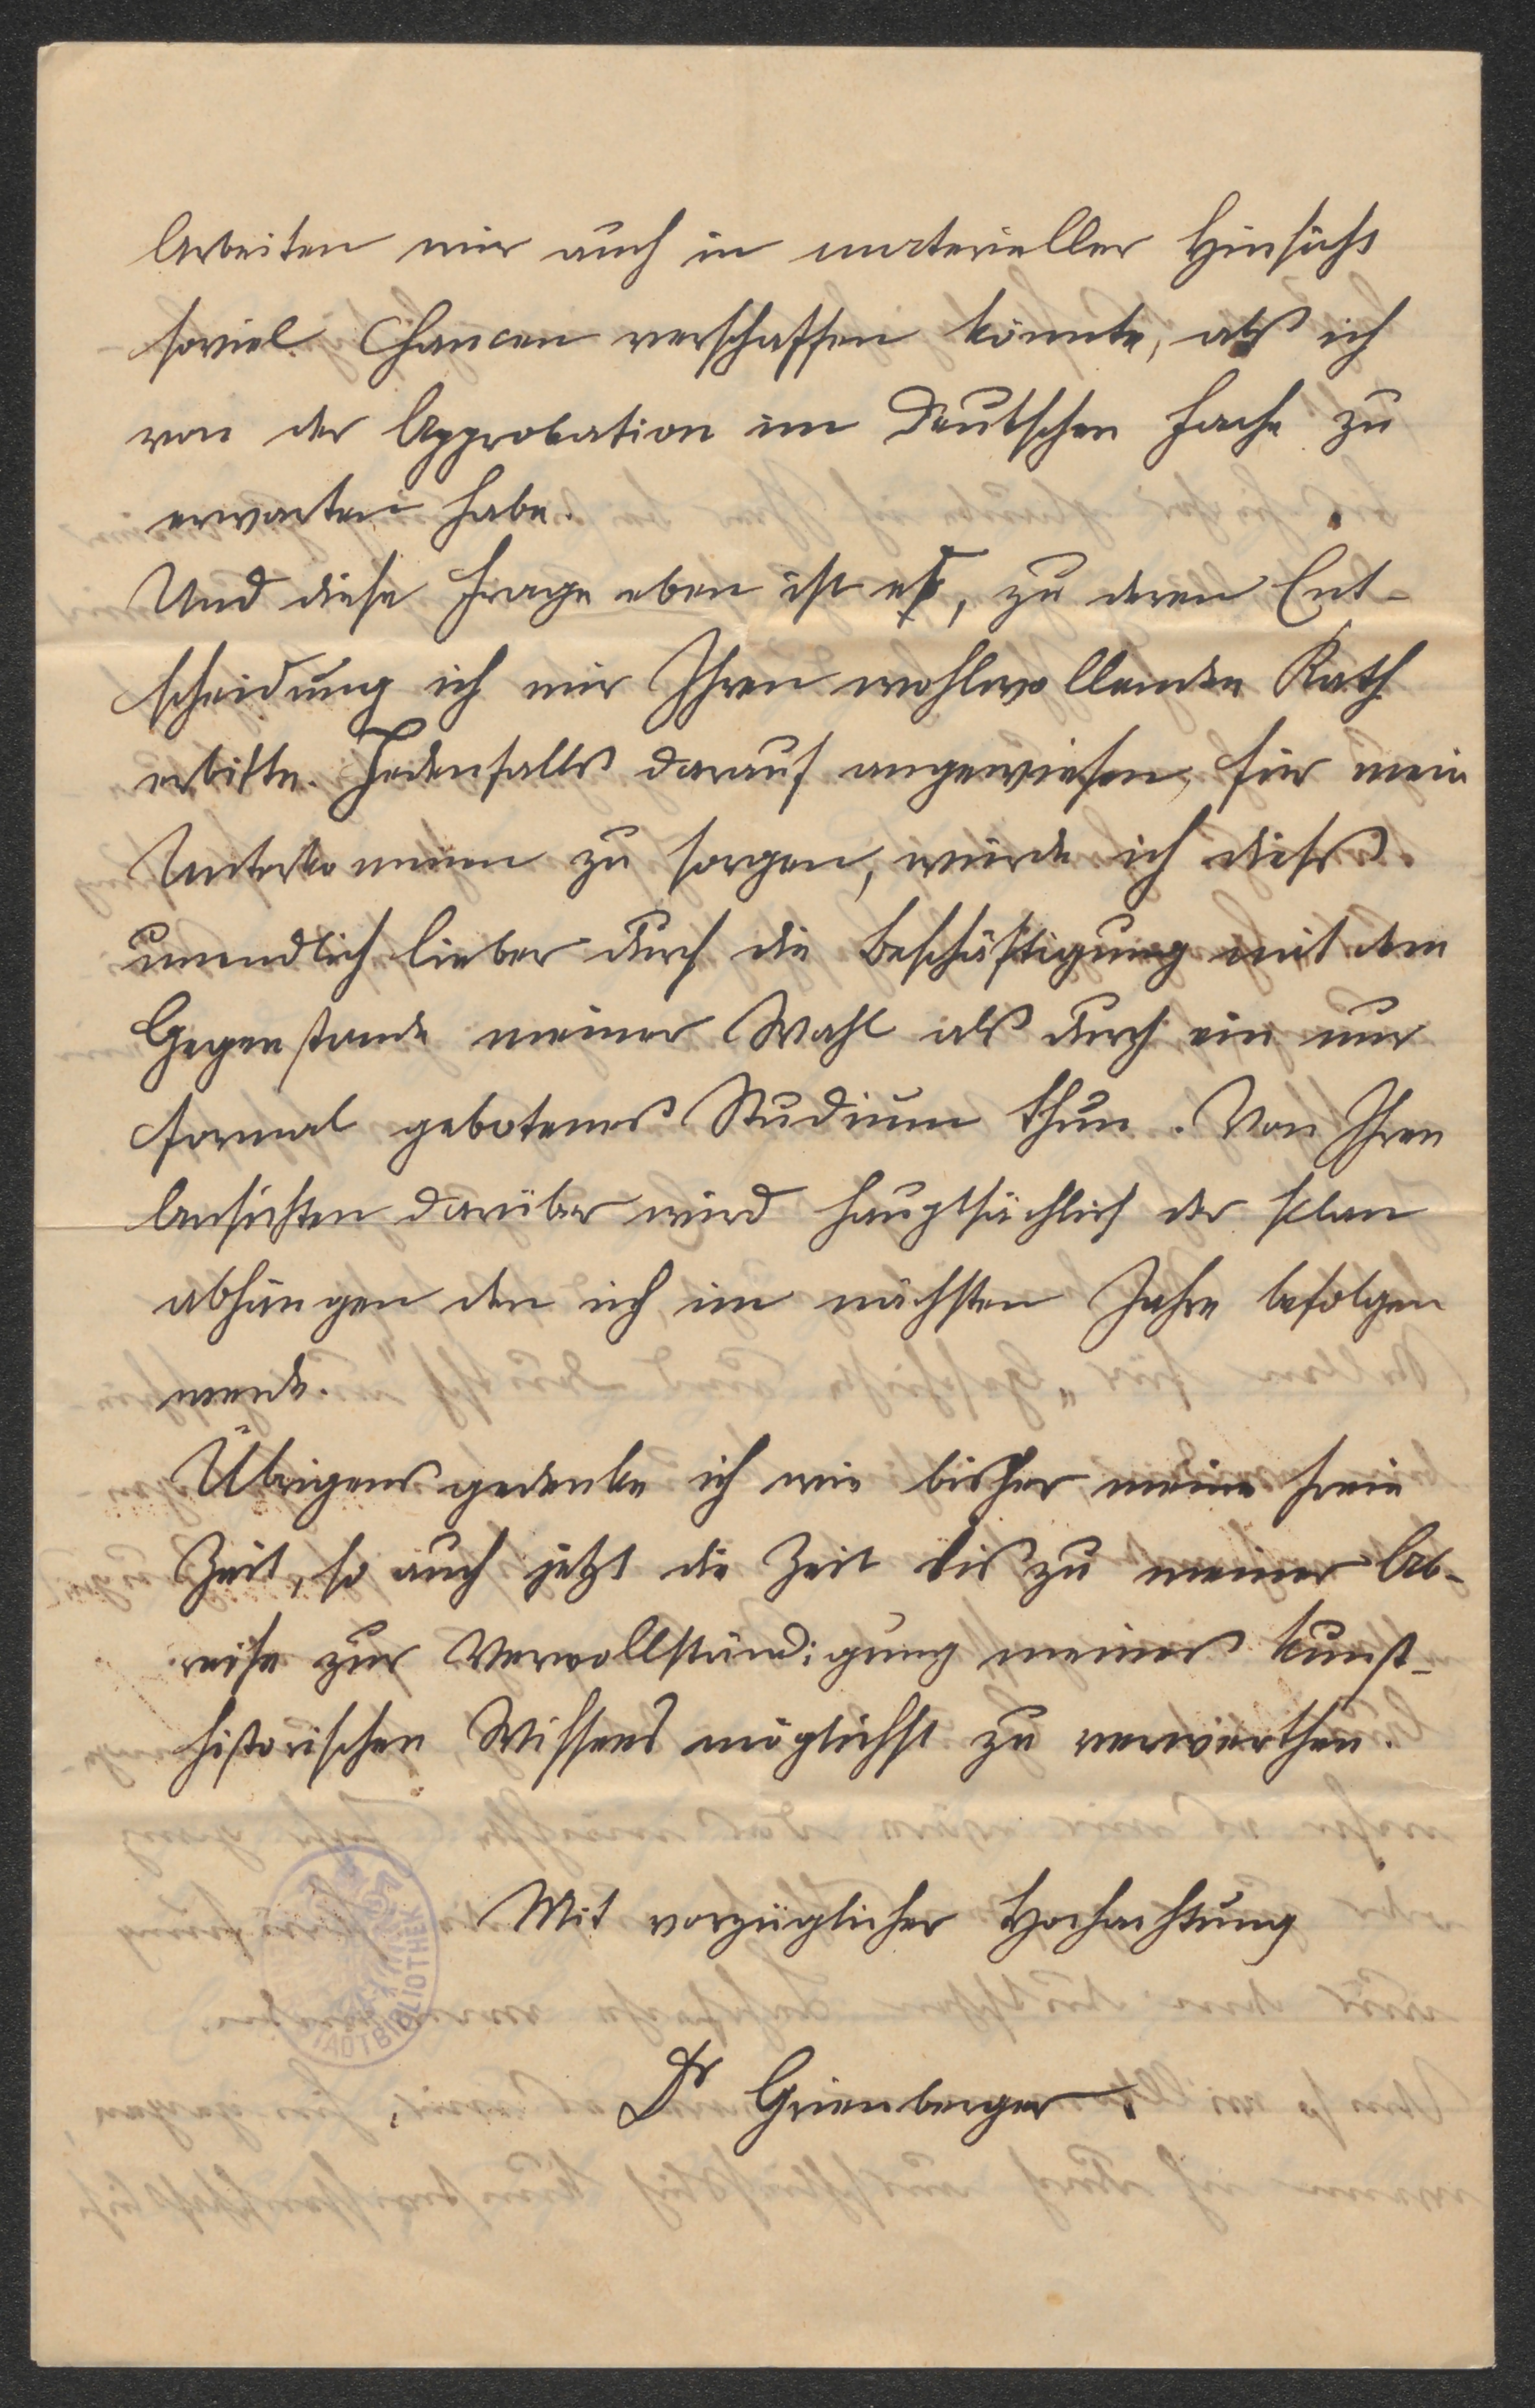 Arbeiten mir auch in materieller Hinsicht
soviel Chancen verschaffen könnte, als ich
von der Approbation im Deutschen Fache zu
erwarten habe.
Und diese Frage eben ist es, zu deren Ent-
scheidung ich mir Ihren wohlwollenden Rath
erbitte. Jedenfalls darauf angewiesen, für mein
Unterkommen zu sorgen, würde ich dieß
unendlich lieber durch die Beschäftigung mit dem
Gegenstande meiner Wahl als durch ein nur
formal gebotenes Studium thun. Von Ihren
Ansichten darüber wird hauptsächlich der Plan
abhängen den ich im nächsten Jahre befolgen
werde.
Übrigens gedenke ich wie bisher meine freie
Zeit, so auch jetzt die Zeit bis zu meiner Ab-
reise zur Vervollständigung meines kunst-
historischen Wissens möglichst zu verwerthen.
Mit vorzüglicher Hochachtung
Dr Grienberger.
STADTBIBLIOTHEK